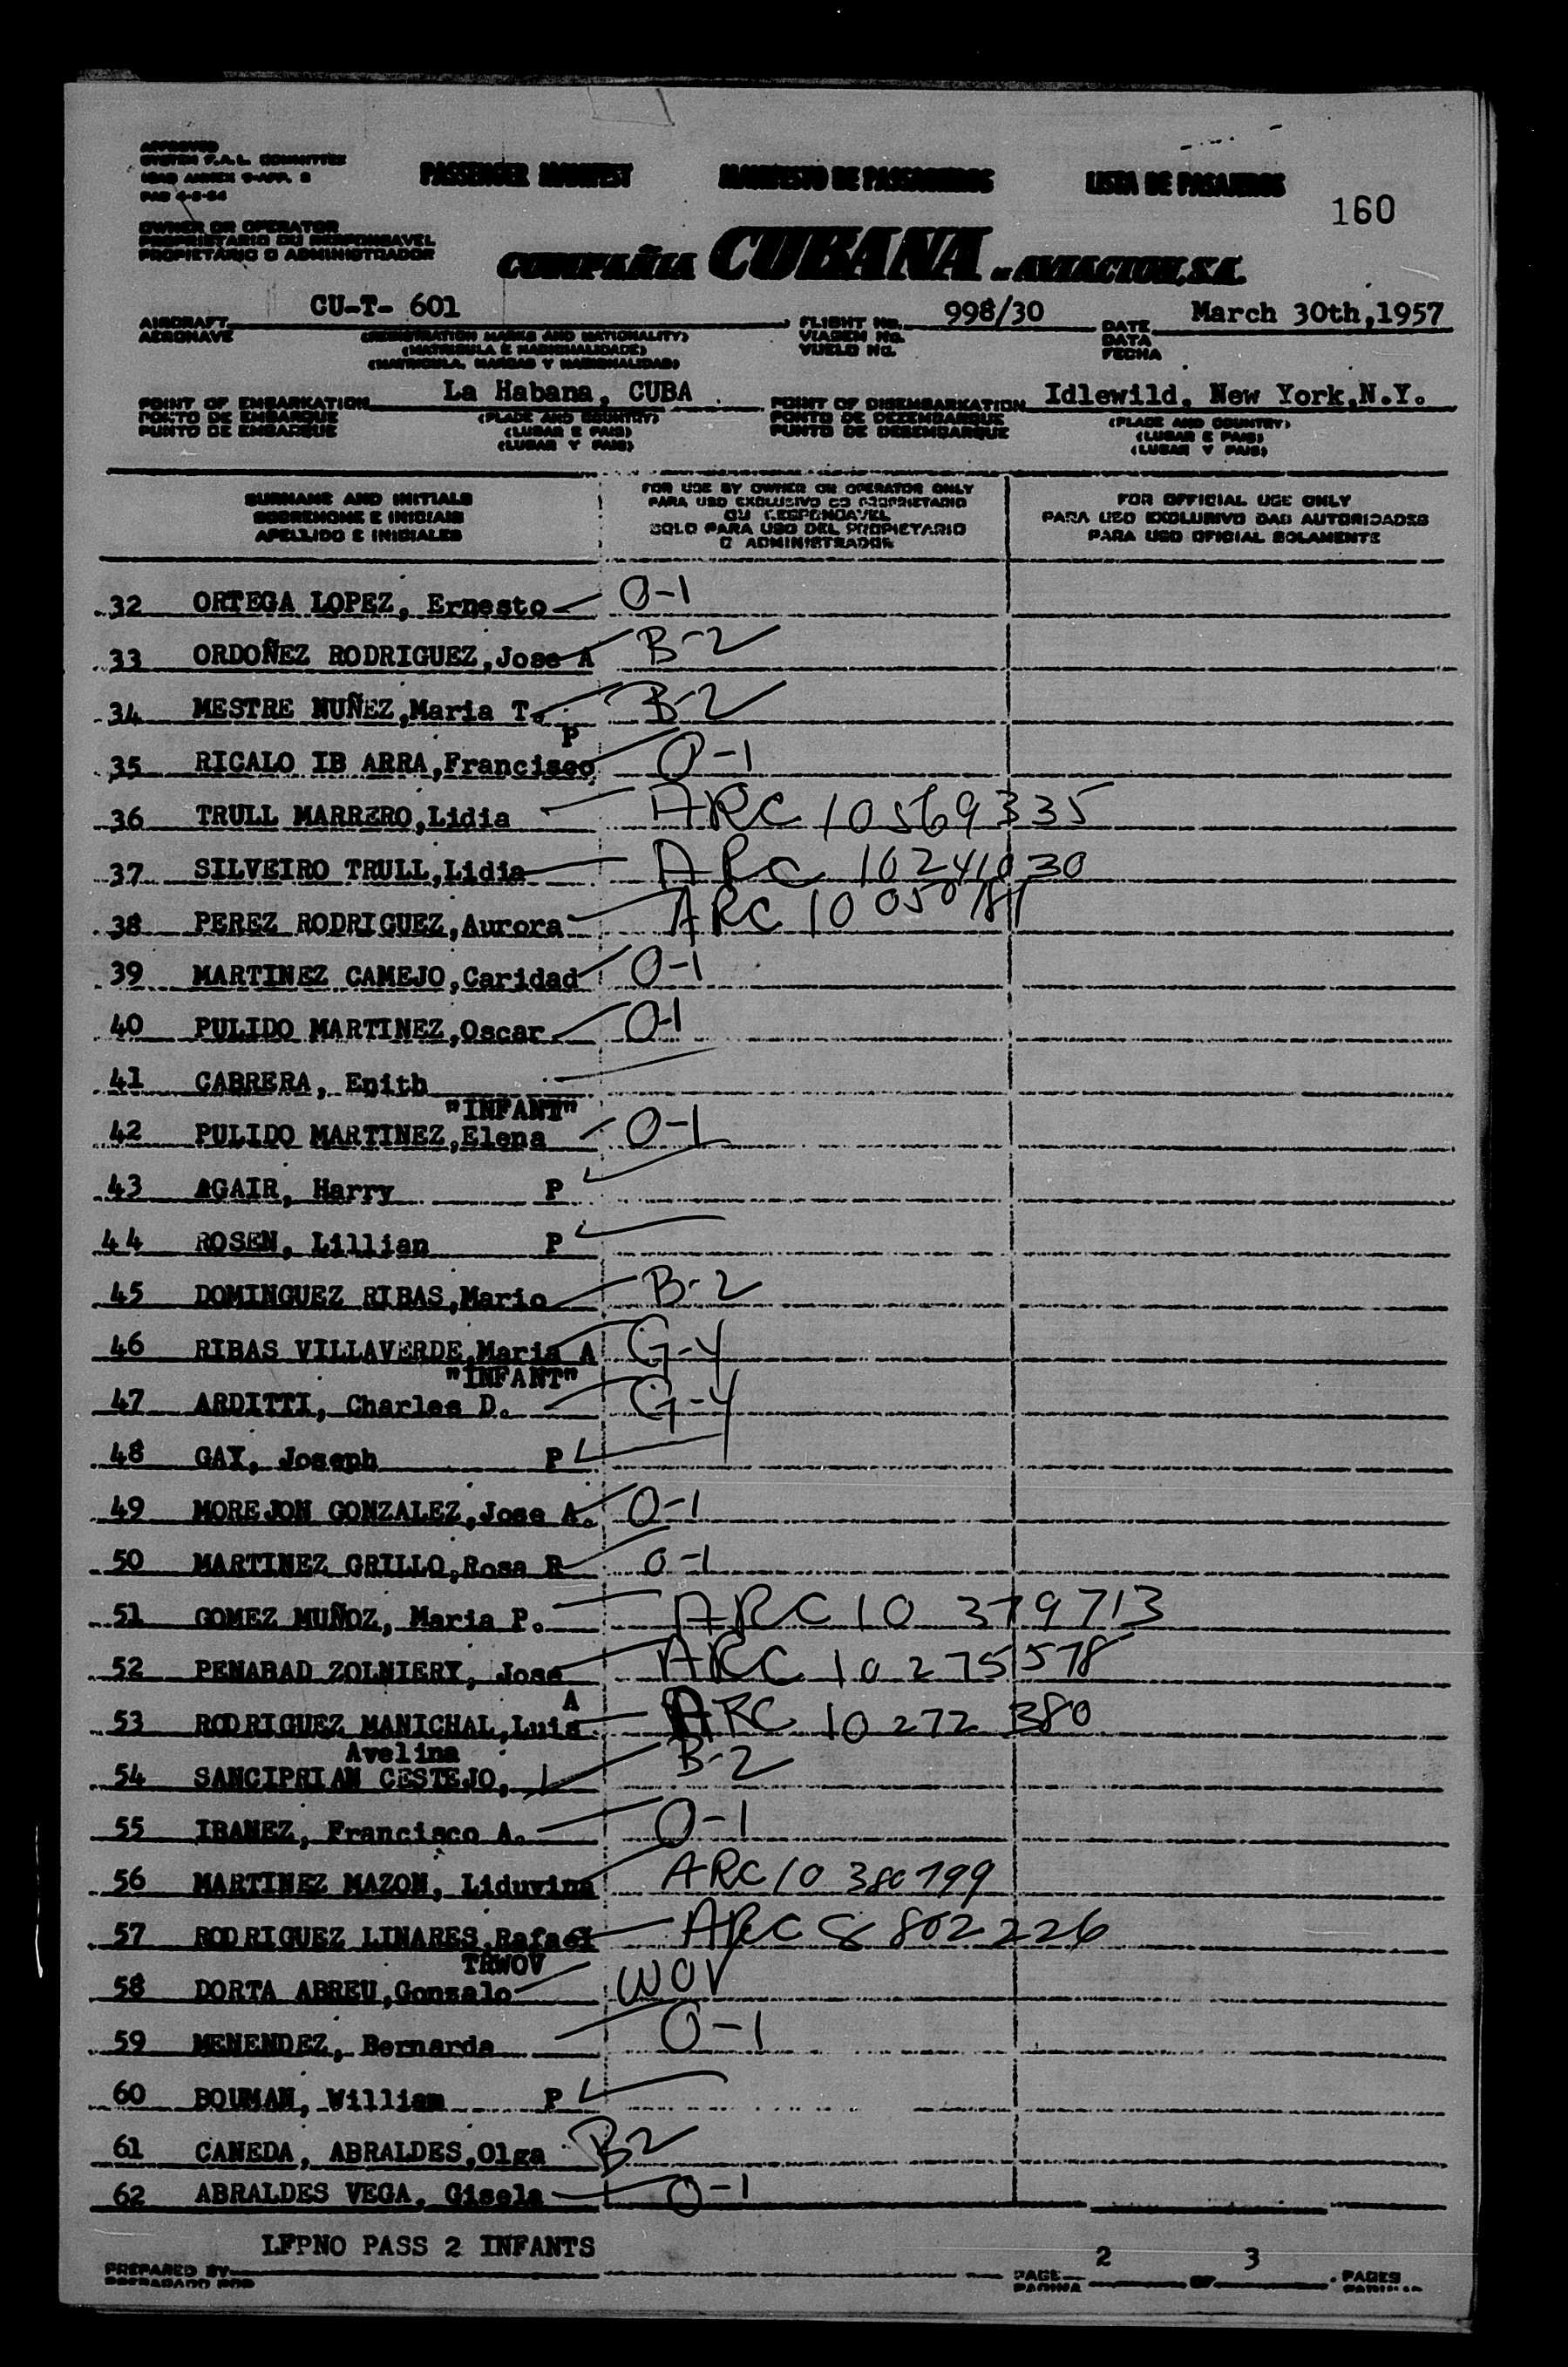 APPROVED
SYSTEM F.A.L. COMMITTEE
ICAO ANNEX 9-APP. 3
PASSENGER MANIFEST MANIFESTO DE PASSAGEIROS LISTA DE PASAJEROS
160
OWNER OR OPERATOR
PROPRIETARIO OU RESPONSAVEL
PROPIETARIO O ADMINISTRADOR
COMPAÑIA CUBANA DE AVIACION, S.A.
AIRCRAFT CU-T- 601 FLIGHT NO. 998/30 DATE March 30th,1957
AERONAVE (REGISTRATION MARKS AND NATIONALITY) VIAGEM NO. DATA
(MATRICULA E NACIONALIDADE) VUELO NO. FECHA
(MATRICULA, MARCAS Y NACIONALIDAD)
POINT OF EMBARKATION La Habana, CUBA POINT OF DISEMBARKATION Idlewild, New York,N.Y.
PONTO DE EMBARQUE (PLACE AND COUNTRY) PONTO DE DEZEMBARQUE (PLACE AND COUNTRY)
PUNTO DE EMBARQUE (LUGAR E PAIS) PUNTO DE DESEMBARQUE (LUGAR E PAIS)
(LUGAR Y PAIS) (LUGAR Y PAIS)
SURNAME AND INITIALS
SOBRENOME E INICIAIS
APELLIDO E INICIALES
FOR USE BY OWNER OR OPERATOR ONLY
PARA USO EXCLUSIVO DO PROPRIETARIO
OU RESPONSAVEL
SOLO PARA USO DEL PROPIETARIO
O ADMINISTRADOR
FOR OFFICIAL USE ONLY
PARA USO EXCLUSIVO DAS AUTORIDADES
PARA USO OFICIAL SOLAMENTE
32 ORTEGA LOPEZ, Ernesto O-1
33 ORDOÑEZ RODRIGUEZ,Jose A B-2
34 MESTRE NUÑEZ,Maria T. B-2
P
35 RICALO IB ARRA,Francisco O-1
36 TRULL MARRERO,Lidia ARC 10569335
37 SILVEIRO TRULL,Lidia ARC 10241030
38 PEREZ RODRIGUEZ,Aurora ARC 10050
39 MARTINEZ CAMEJO,Caridad O-1
40 PULIDO MARTINEZ,Oscar O-1
41 CABRERA, Enith
"INFANT"
42 PULIDO MARTINEZ,Elena O-1
43 AGAIR, Harry P
44 ROSEN, Lillian P
45 DOMINGUEZ RIBAS,Mario B-2
46 RIBAS VILLAVERDE,Maria A G-4
"INFANT"
47 ARDITTI, Charles D. G-4
48 GAY, Joseph P
49 MOREJON GONZALEZ,Jose A. O-1
50 MARTINEZ GRILLO,Rosa R O-1
51 GOMEZ MUÑOZ, Maria P. ARC 10 379713
52 PENABAD ZOLNIERY, Jose ARC 10 275578
A
53 RODRIGUEZ MANICHAL,Luis ARC 10272 380
Avelina
54 SANCIPRIAN CESTEJO, B-2
55 IBANEZ, Francisco A. O-1
56 MARTINEZ MAZON, Liduvina ARC 10 380799
57 RODRIGUEZ LINARES,Rafael ARC 8 802226
TRWOV
58 DORTA ABREU,Gonzalo WOV
59 MENENDEZ, Bernarda O-1
60 BOUMAN, William P
61 CANEDA, ABRALDES,Olga B2
62 ABRALDES VEGA, Gisela O-1
LFPNO PASS 2 INFANTS
PREPARED BY PAGE 2 OF 3 PAGES
PREPARADO POR PAGINA